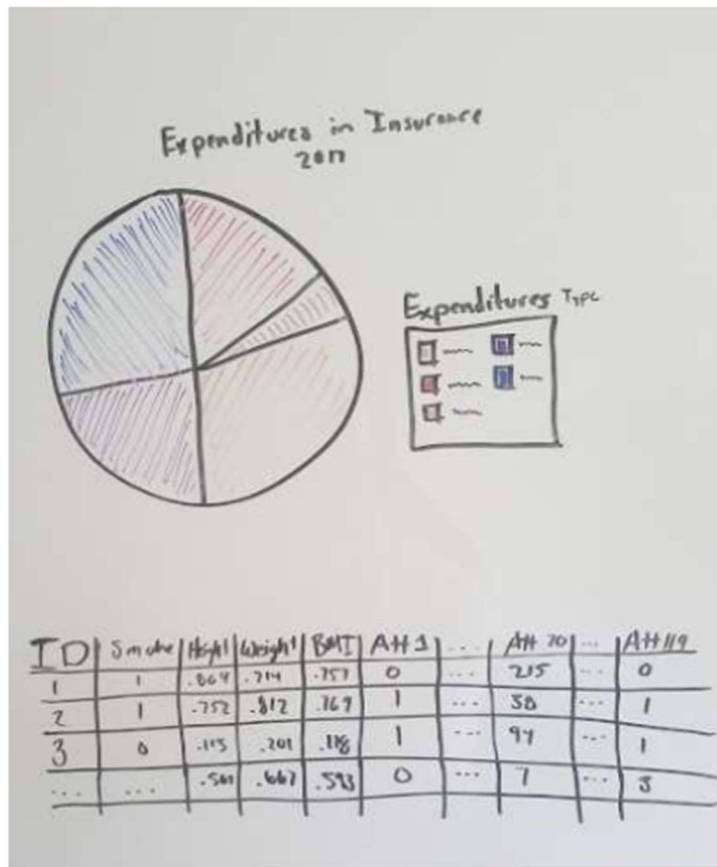 Expenditures in Insurance
2017
Expenditures Type
ID Smoke Height Weight BMI Att 1 ... Att 70 ... Att 119
1 1 .864 .714 .757 0 ... 215 ... 0
2 1 .752 .812 .769 1 ... 58 ... 1
3 0 .201 .118 1 ... 94 ... 1
... ... .667 .593 0 ... 7 ... 3